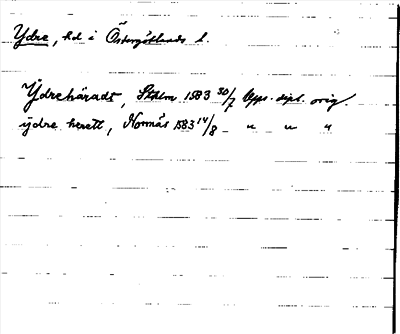 Ydre, hd i Östergötlands l.
Ydrehäradt, Sthlm 1583 30/7 Upps. dipl. orig.
ijdre herett, Norrnäs 1583 14/8 - " " "